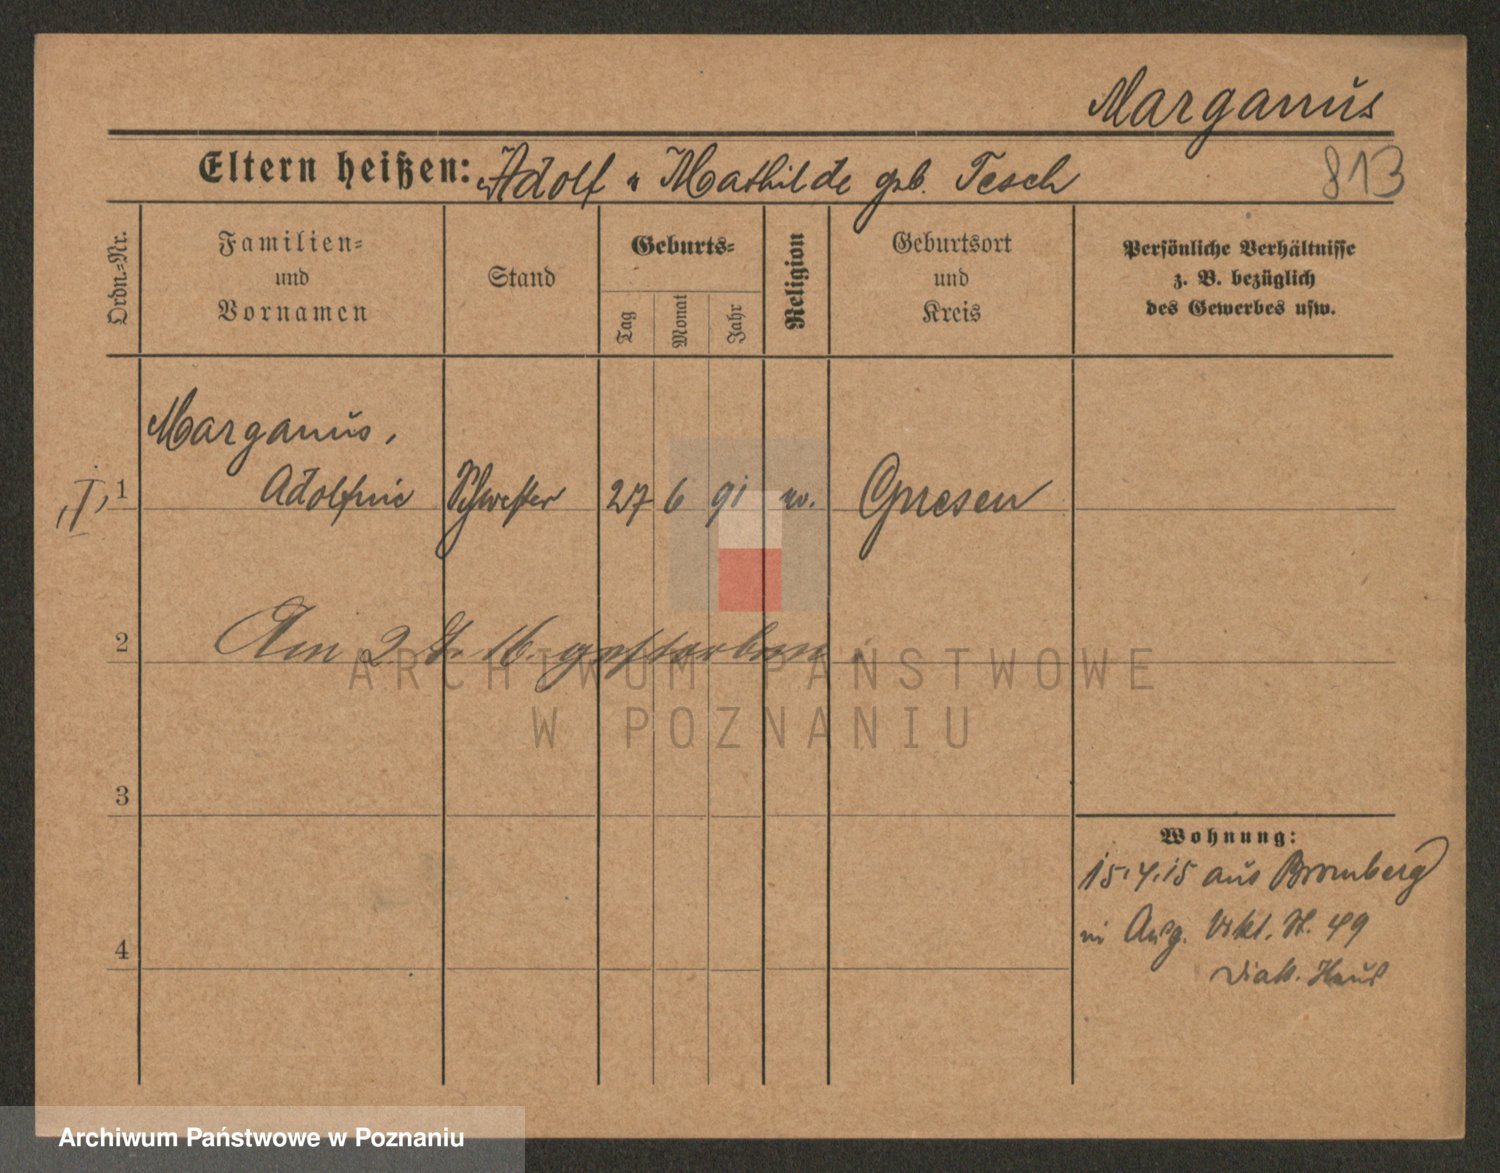 Marganus
Eltern heißen: Adolf u Mathilde geb. Tesch
813
Ordn.-Nr.
Familien-
und
Vornamen
Stand
Geburts-
Tag
Monat
Jahr
Religion
Geburtsort
und
Kreis
Persönliche Verhältnisse
z. B. bezüglich
des Gewerbes usw.
Marganus,
"I" 1 Adolfine Schwester 27 6 91 ev. Gnesen
2 Am 2. 8. 16. gestorben.
3
4
Wohnung:
15.4.15 aus Bromberg
in Aug. Vikt. St. 49
Diak. Haus
ARCHIWUM PAŃSTWOWE
W POZNANIU
Archiwum Państwowe w Poznaniu